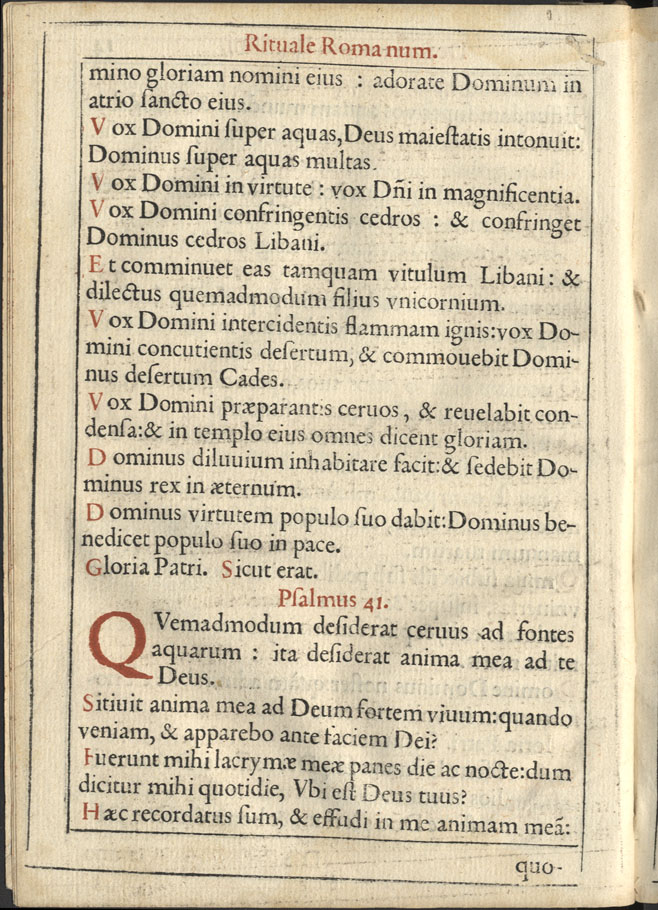 Rituale Romanum.
mino gloriam nomini eius : adorate Dominum in
atrio ſancto eius.
Vox Domini ſuper aquas,Deus maieſtatis intonuit:
Dominus ſuper aquas multas.
Vox Domini in virtute : vox Dñi in magnificentia.
Vox Domini confringentis cedros : & confringet
Dominus cedros Libani.
Et comminuet eas tamquam vitulum Libani : &
dilectus quemadmodum filius vnicornium.
Vox Domini intercidentis flammam ignis:vox Do-
mini concutientis deſertum, & commouebit Domi-
nus deſertum Cades.
Vox Domini præparantis ceruos, & reuelabit con-
denſa:& in templo eius omnes dicent gloriam.
Dominus diluuium inhabitare facit:& ſedebit Do-
minus rex in æternum.
Dominus virtutem populo ſuo dabit:Dominus be-
nedicet populo ſuo in pace.
Gloria Patri. Sicut erat.
Pſalmus 41.
QVemadmodum deſiderat ceruus ad fontes
aquarum : ita deſiderat anima mea ad te
Deus.
Sitiuit anima mea ad Deum fortem viuum:quando
veniam, & apparebo ante faciem Dei?
Fuerunt mihi lacrymæ meæ panes die ac nocte:dum
dicitur mihi quotidie, Vbi eſt Deus tuus?
Hæc recordatus ſum, & effudi in me animam meã:
quo-